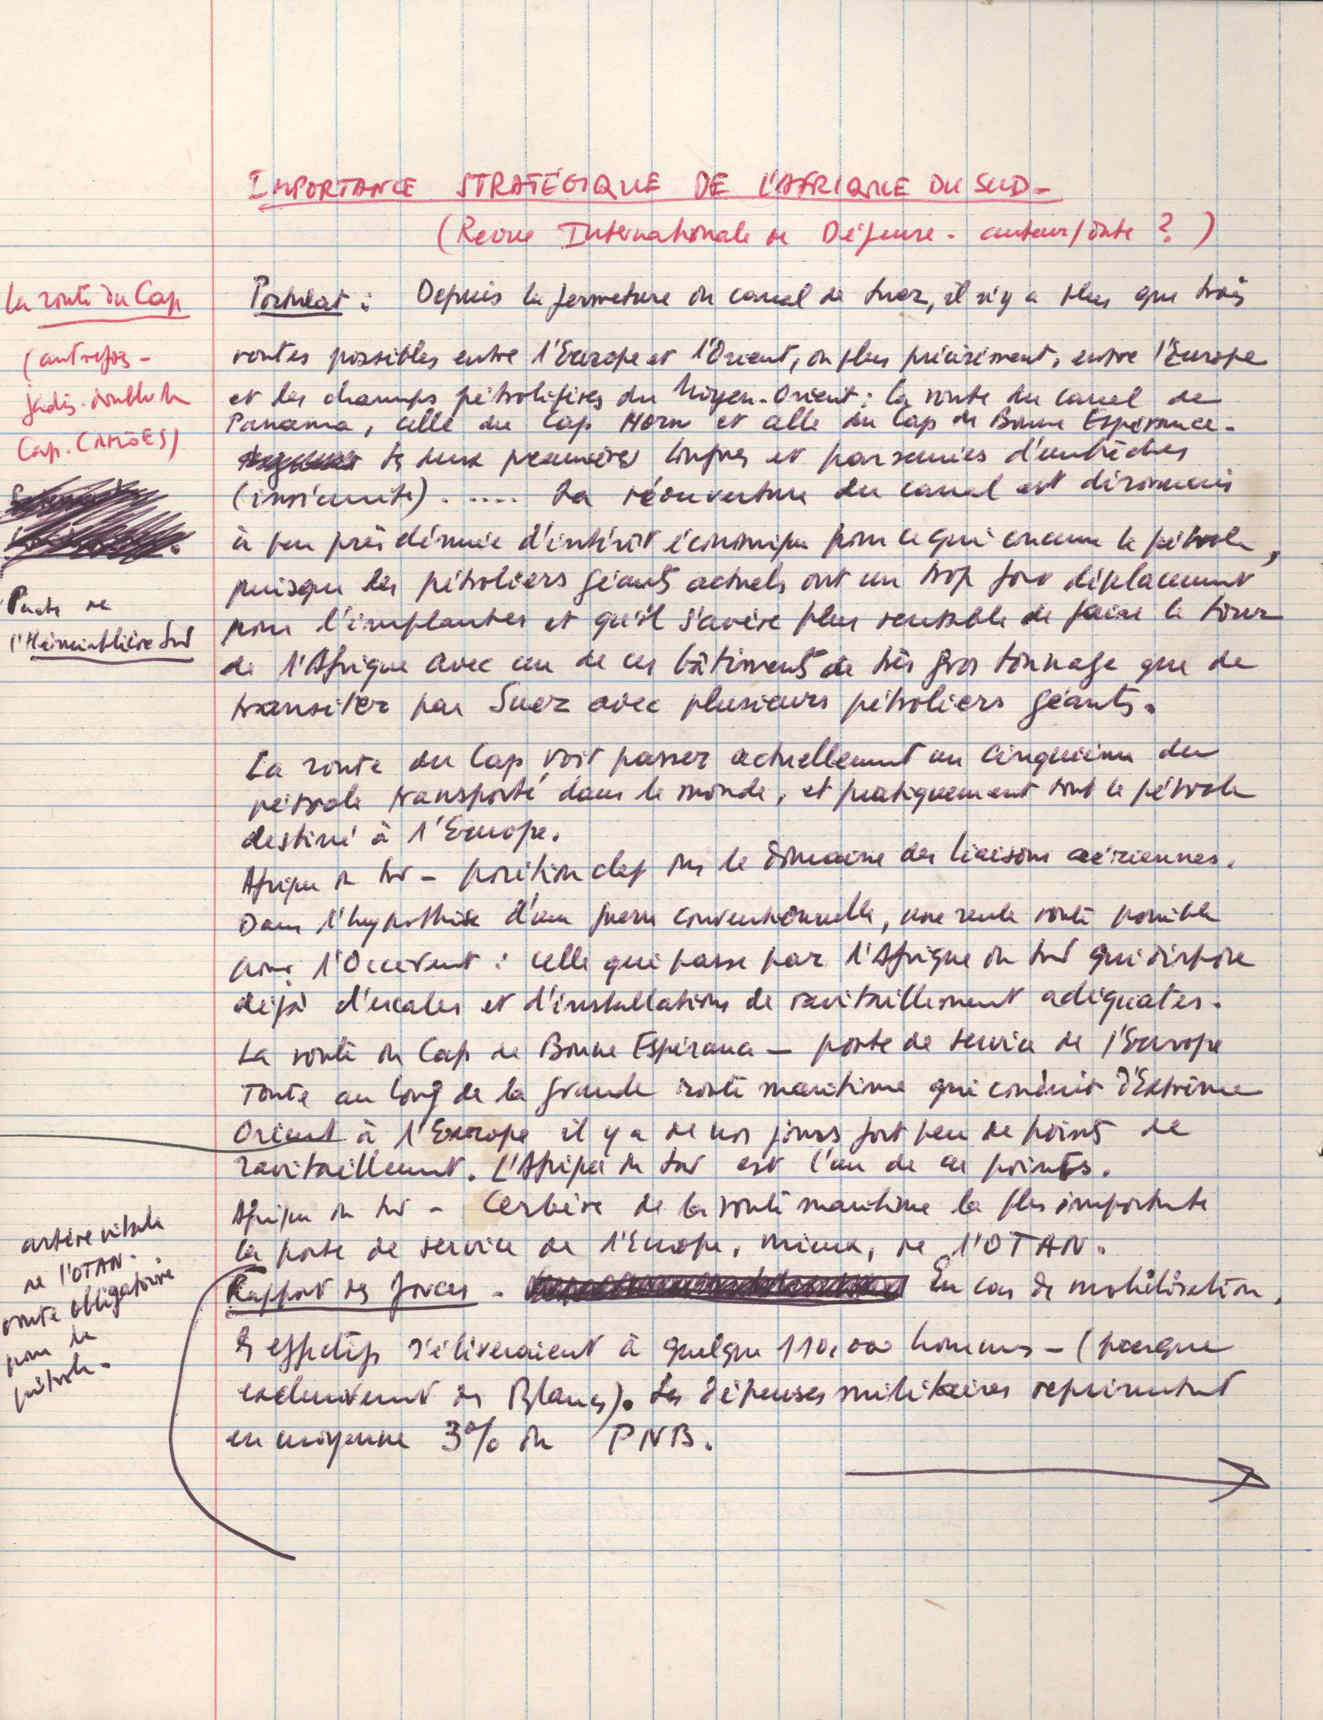 IMPORTANCE STRATÉGIQUE DE L'AFRIQUE DU SUD -
(Revue Internationale de Défense - auteur/date ?)
La route du Cap
(autrefois -
jadis - double le
Cap. CAMOËS)
Postulat : Depuis la fermeture du canal de Suez, il n'y a plus que trois
routes possibles entre l'Europe et l'Orient, ou plus précisément, entre l'Europe
et les champs pétrolifères du Moyen-Orient : la route du canal de
Panama, celle du Cap Horn et celle du Cap de Bonne Espérance -
les deux premières longues et parsemées d'embûches
(insécurité). .... La réouverture du canal est désormais
à peu près dénuée d'intérêt économique pour ce qui concerne le pétrole,
puisque les pétroliers géants actuels ont un trop fort déplacement
Pacte de
l'Hémisphère Sud
pour l'emprunter et qu'il s'avère plus rentable de faire le tour
de l'Afrique avec un de ces bâtiments de très gros tonnage que de
transiter par Suez avec plusieurs pétroliers géants.
La route du Cap voit passer actuellement un cinquième du
pétrole transporté dans le monde, et pratiquement tout le pétrole
destiné à l'Europe.
Afrique du Sud - position clef ds le domaine des liaisons aériennes.
Dans l'hypothèse d'une guerre conventionnelle, une seule route possible
pour l'Occident : celle qui passe par l'Afrique du Sud qui dispose
déjà d'escales et d'installations de ravitaillement adéquates.
La route du Cap de Bonne Espérance - porte de service de l'Europe
Toute au long de la grande route maritime qui conduit d'Extrême
Orient à l'Europe il y a de nos jours fort peu de points de
ravitaillement. L'Afrique du Sud est l'un de ces points.
Afrique du Sud - Cerbère de la route maritime la plus importante
la porte de service de l'Europe, mieux, de l'OTAN.
artère vitale
de l'OTAN -
route obligatoire
pour le
pétrole -
Rapport des forces - En cas de mobilisation,
les effectifs s'élèveraient à quelque 110.000 hommes - (presque
exclusivement des Blancs). Les dépenses militaires représentent
en moyenne 3% du PNB.